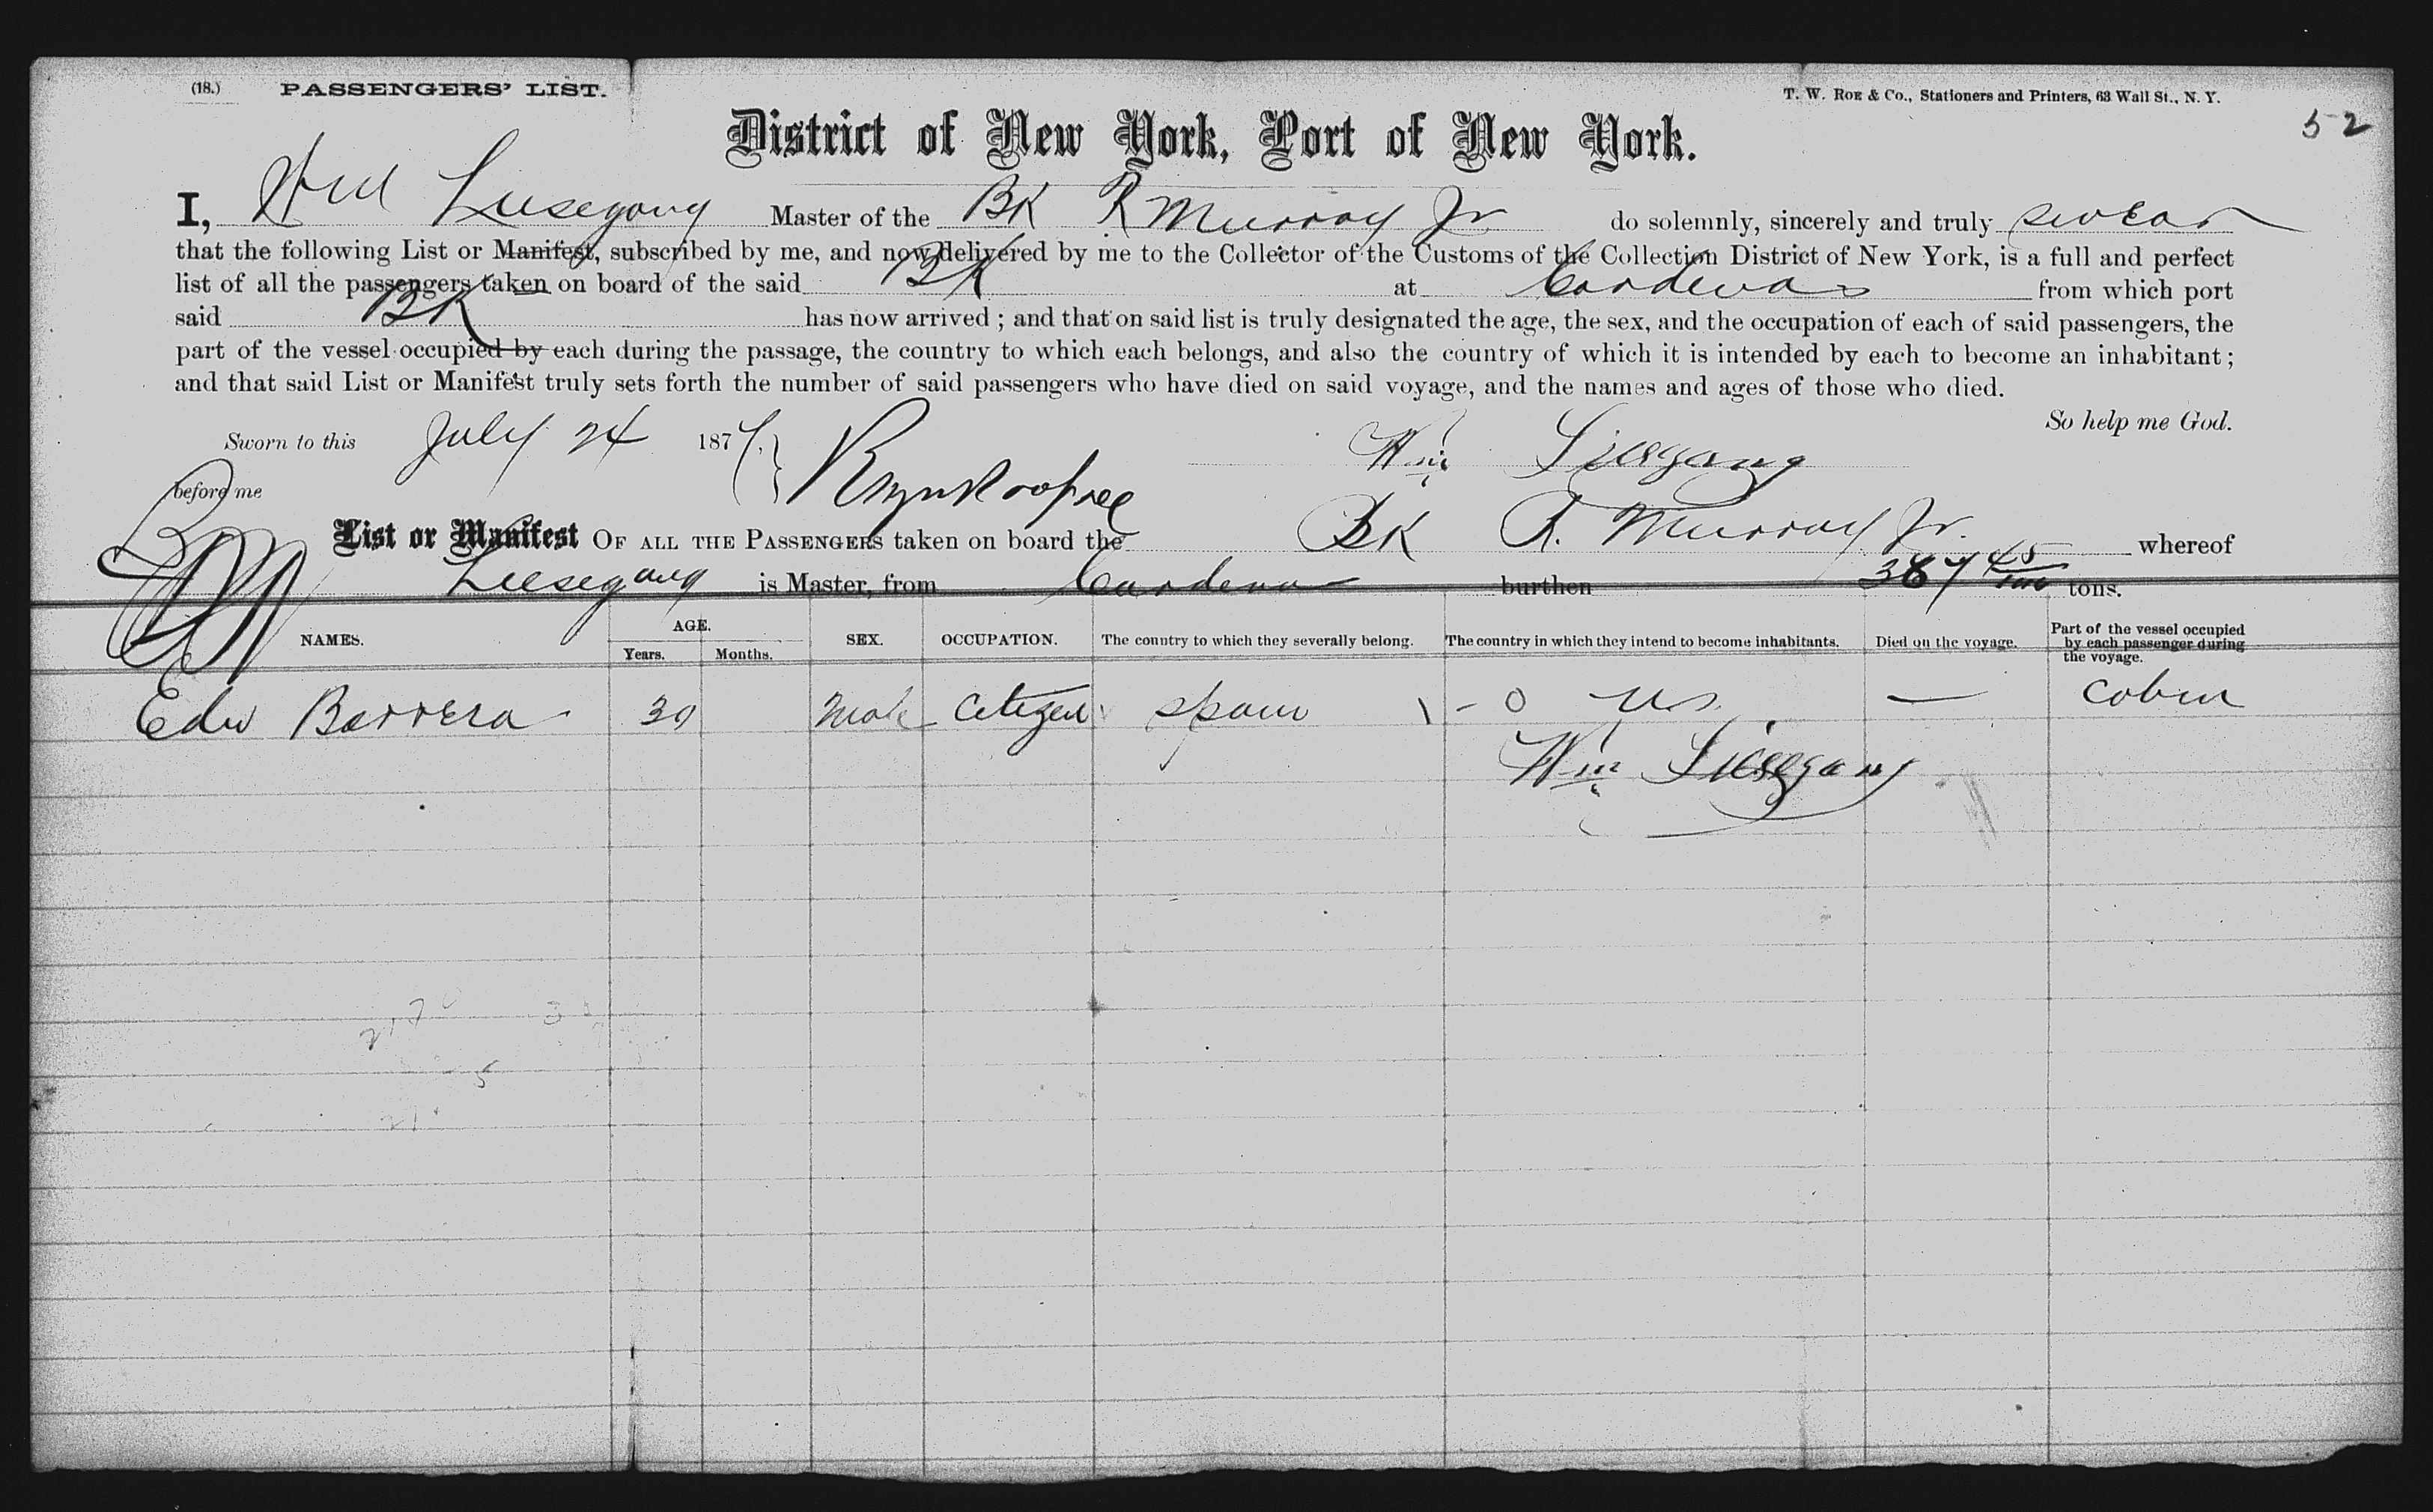 (18.) PASSENGERS' LIST.
T. W. Roe & Co., Stationers and Printers, 63 Wall St., N. Y.
52
District of New York, Port of New York.
I, Liesegang Master of the BK R Murray Jr do solemnly, sincerely and truly swear
that the following List or Manifest, subscribed by me, and now delivered by me to the Collector of the Customs of the Collection District of New York, is a full and perfect
list of all the passengers taken on board of the said BK at Cardenas from which port
said BK has now arrived ; and that on said list is truly designated the age, the sex, and the occupation of each of said passengers, the
part of the vessel occupied by each during the passage, the country to which each belongs, and also the country of which it is intended by each to become an inhabitant ;
and that said List or Manifest truly sets forth the number of said passengers who have died on said voyage, and the names and ages of those who died.
So help me God.
Sworn to this July 24 187
Wm Liesegang
before me
List or Manifest OF ALL THE PASSENGERS taken on board the BK R. Murray Jr. whereof
Liesegang is Master, from Cardenas burthen 387 45/100 tons.
NAMES. AGE. Years. Months. SEX. OCCUPATION. The country to which they severally belong. The country in which they intend to become inhabitants. Died on the voyage. Part of the vessel occupied by each passenger during the voyage.
Edw Barrera 30 Male Citizen Spain \ - o U S. — Cabin
Wm Liesegang